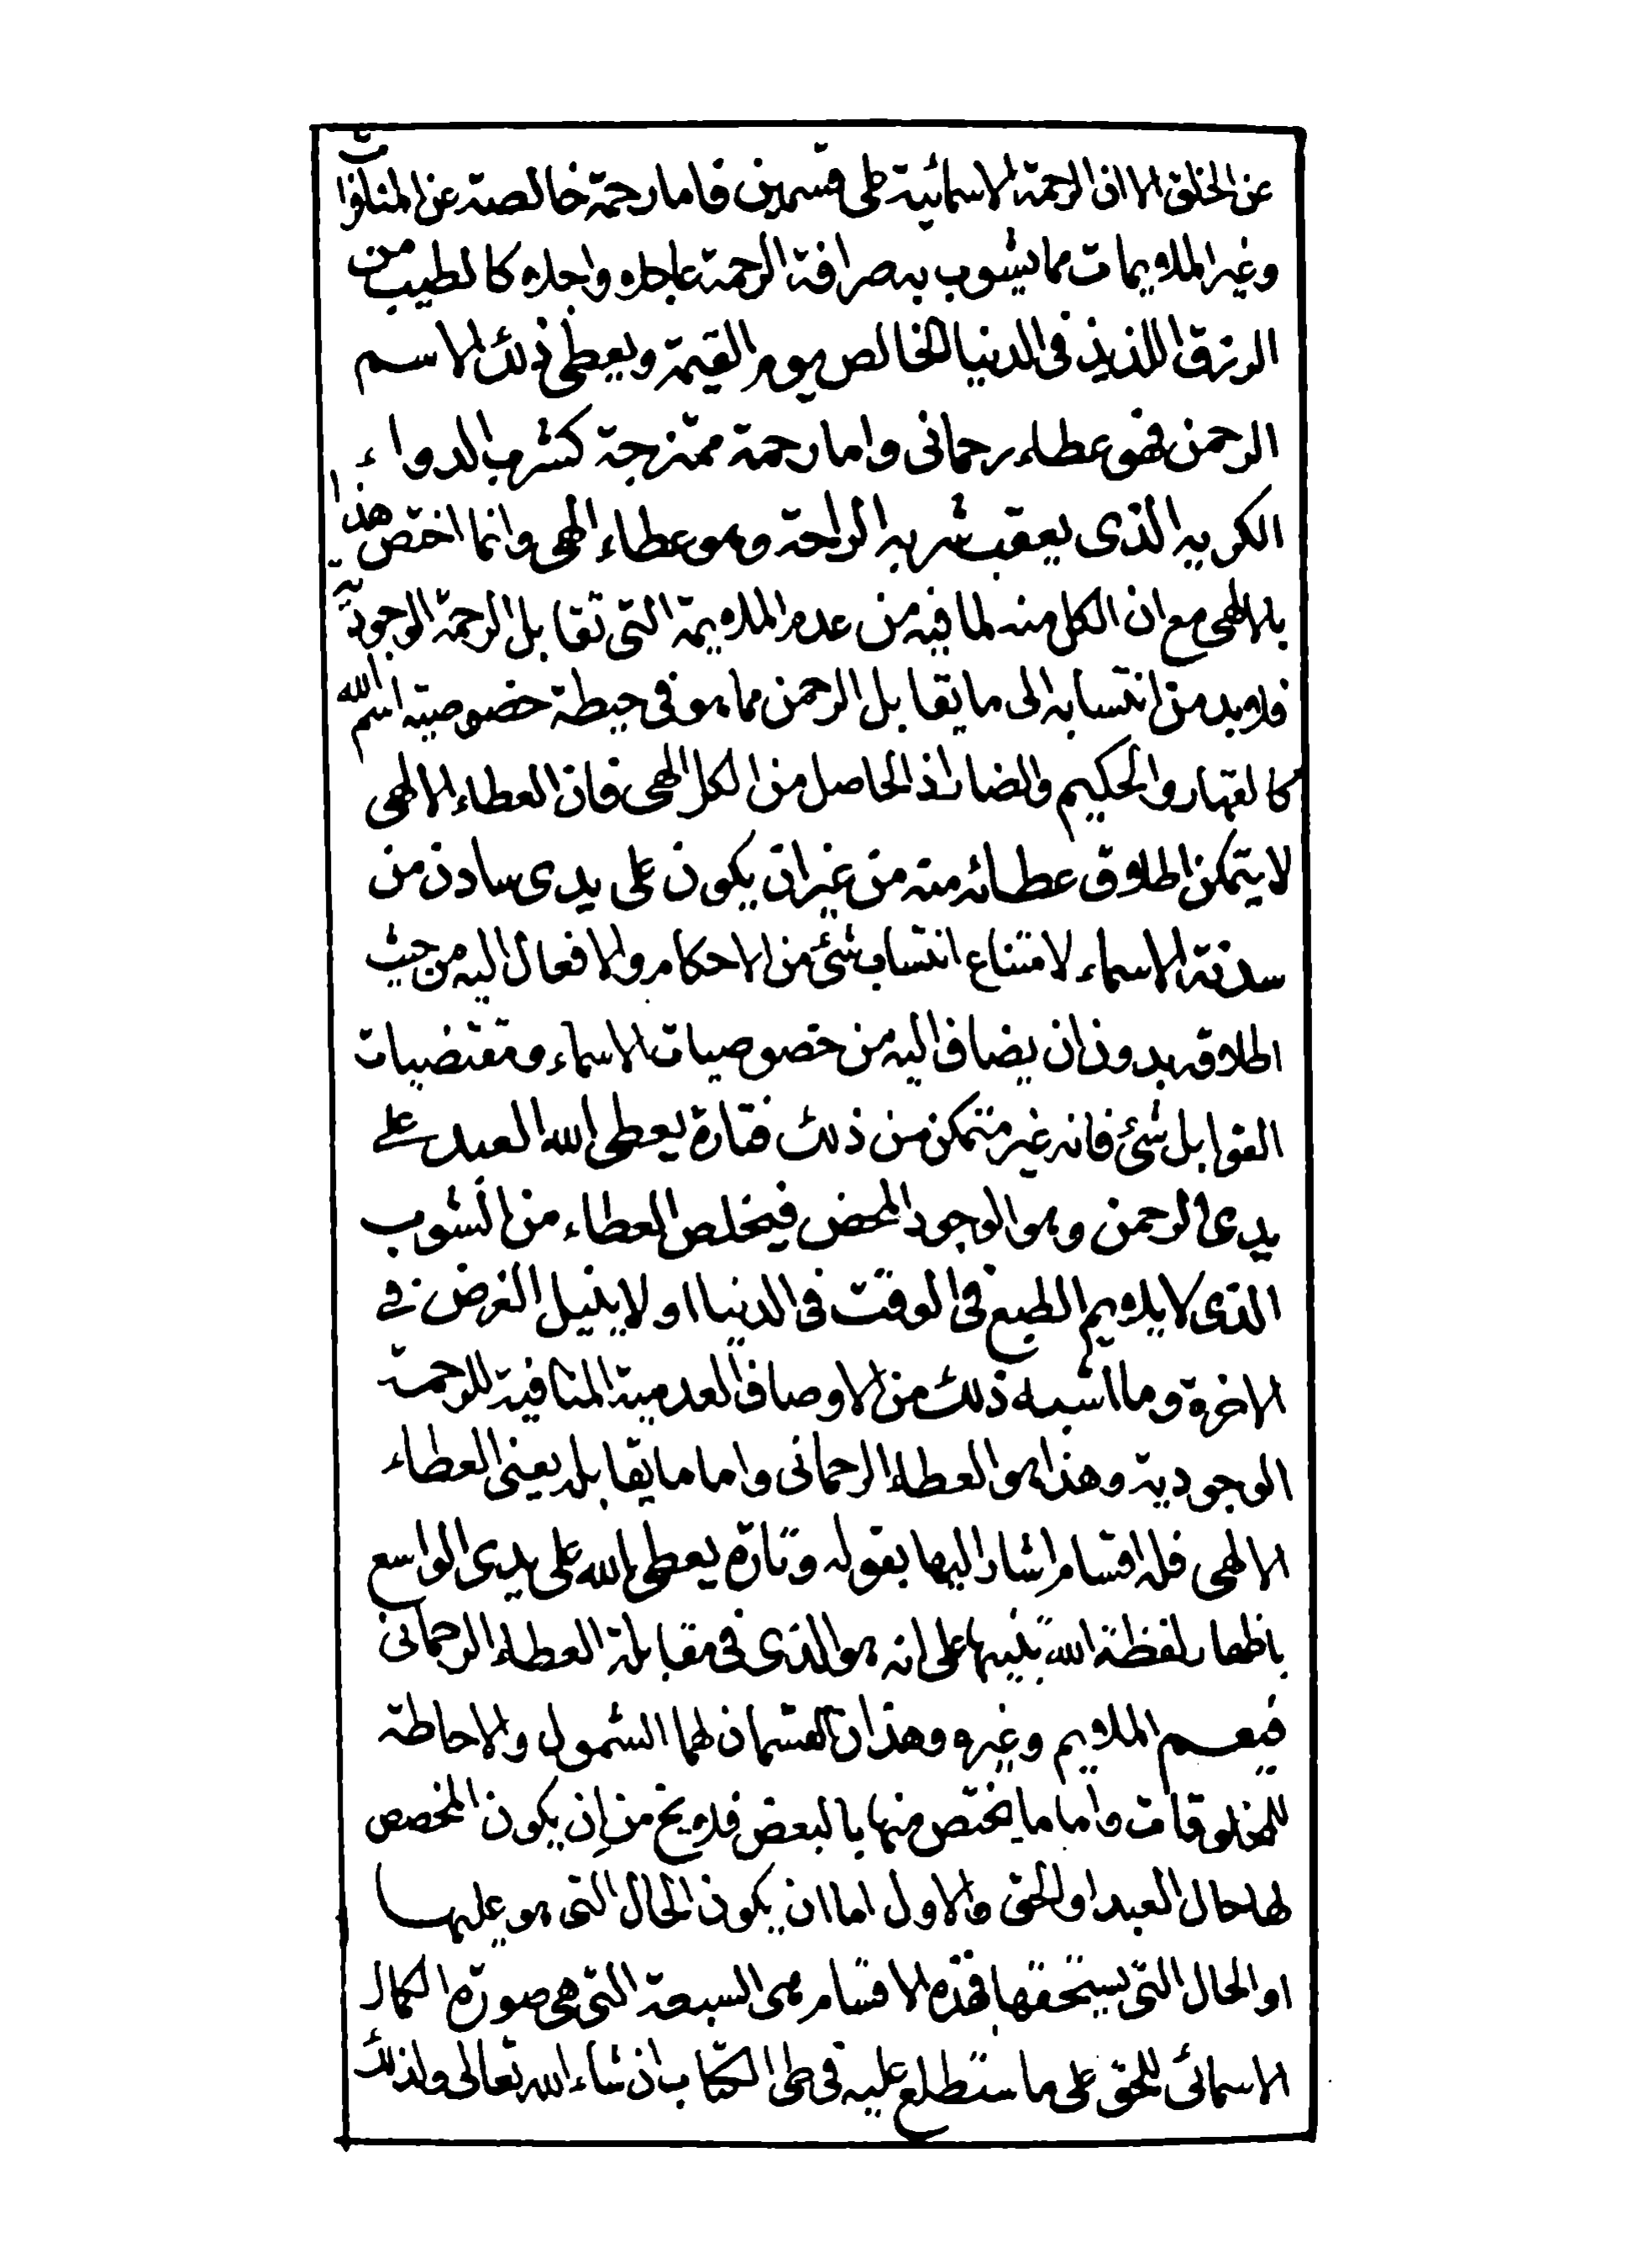 عن الخلق الا ان الرحمة الاسمائية على قسمين فاما رحمة خالصة عن المنافرات
وغير الملايمات مما يشوب به صرافة الرحمة عاجله واجله كالطيب من
الرزق اللذيذ فى الدنيا الخالص يوم القيمة ويعطى ذلك الاسم
الرحمن فهو عطاء رحمانى واما رحمة ممتزجة كشرب الدواء
الكريه الذى يعقب شربه الراحة وهو عطاء الهى وانما اختص هذا
بالالهى مع ان الكل منه لما فيه من عدم الملايمة التى تقابل الرحمة الوجودية
فلا بد من انتسابه الى ما يقابل الرحمن مما هو فى حيطة خصوصية اسم الله
كالقهار والحكيم والضار اذ الحاصل من الكل الهى فان العطاء الالهى
لا يتمكن اطلاق عطائه منه من غير ان يكون على يدى سادن من
سدنة الاسماء لامتناع انتساب شئ من الاحكام والافعال اليه من حيث
اطلاقه بدون ان يضاف اليه من خصوصيات الاسماء ومقتضيات
القوابل شئ فانه غير متمكن من ذلك فتارة يعطى الله العبد على
يدى الرحمن وهو الوجود المحض فيخلص العطاء من الشوب
الذى لا يلايم الطبع فى الوقت فى الدنيا او لا ينيل الغرض فى
الاخرة وما اشبه ذلك من الاوصاف العدمية المنافية للرحمة
الوجودية وهذا هو العطاء الرحمانى واما ما يقابله يعنى العطاء
الالهى فله اقسام اشار اليها بقوله وتارة يعطى الله على يدى الواسع
باظهار لفظة الله تنبيها على انه هو الذى فى مقابلة العطاء الرحمانى
فيعم الملايم وغيره وهذان القسمان لهما الشمول والاحاطة
للمخلوقات واما ما يختص منها بالبعض فلا يخ من ان يكون المخصص
لها حال العبد او الحق والاول اما ان يكون الحال التى هو عليها
او الحال التى يستحقها فهذه الاقسام هى السبعة التى هى صورة الكمال
الاسمائى للحق على ما ستطلع عليه فى طى الكتاب ان شاء الله تعالى ولذلك